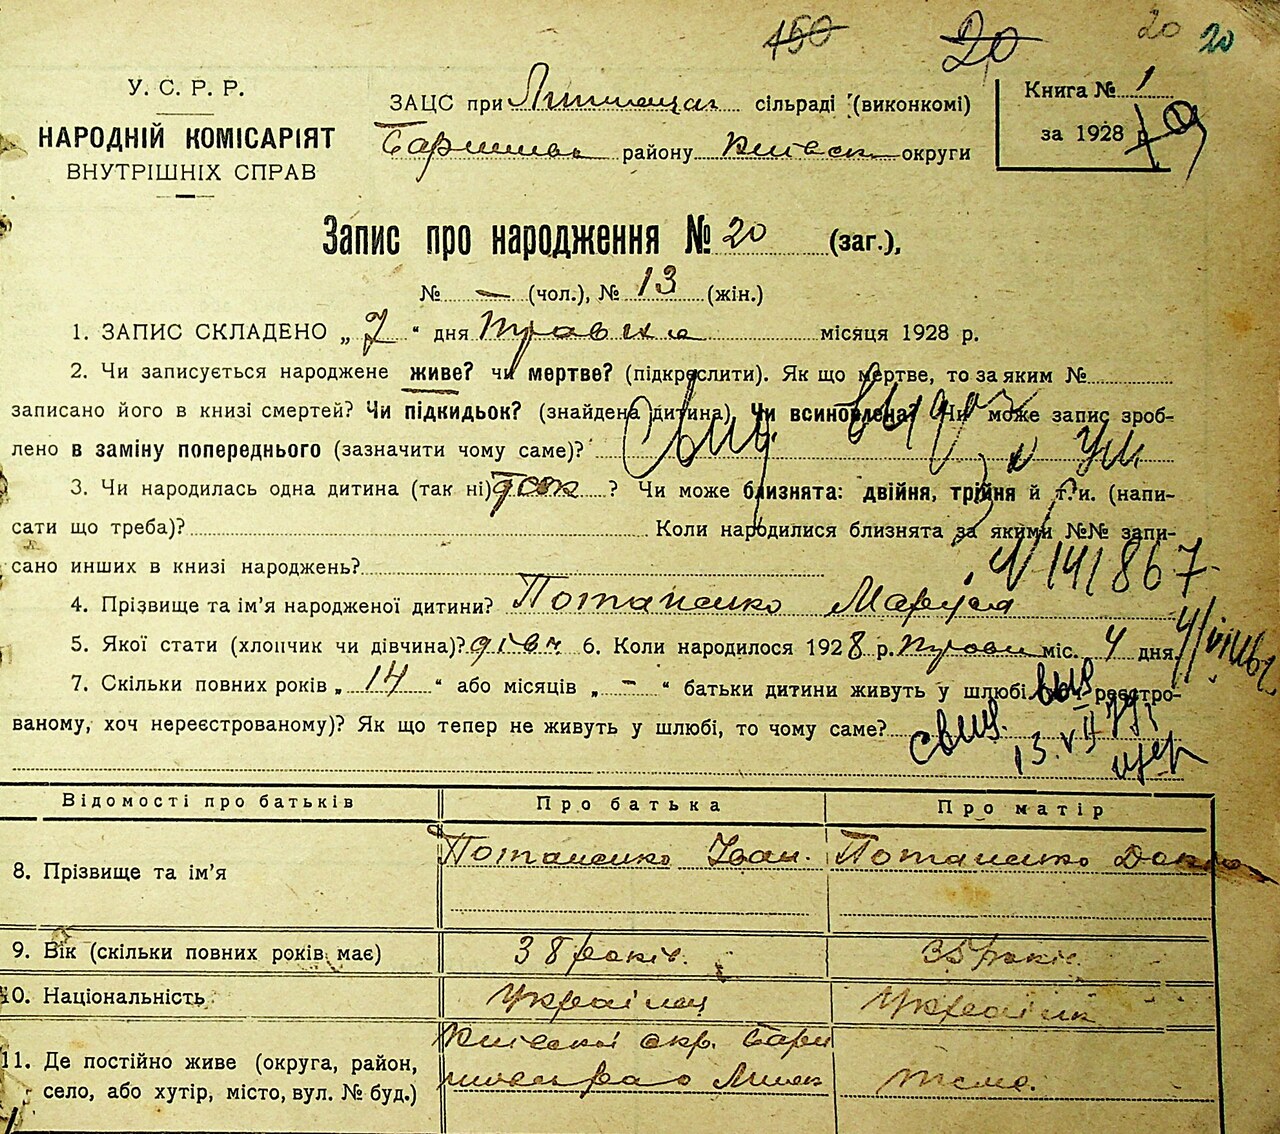 150 20 20 20
У. С. Р. Р.
НАРОДНІЙ КОМІСАРІЯТ
ВНУТРІШНІХ СПРАВ
ЗАЦС при сільраді (виконкомі)
району Київськ округи
Книга № 1
за 1928 р.
Запис про народження № 20 (заг.),
№ — (чол.), № 13 (жін.)
1. ЗАПИС СКЛАДЕНО „ 7 “ дня травня місяця 1928 р.
2. Чи записується народжене живе? чи мертве? (підкреслити). Як що мертве, то за яким №
записано його в книзі смертей? Чи підкидьок? (знайдена дитина) Чи всиновлена? Чи може запис зроб-
лено в заміну попереднього (зазначити чому саме)?
3. Чи народилась одна дитина (так ні) ? Чи може близнята: двійня, трійня й т. и. (напи-
сати що треба)? Коли народилися близнята за якими №№ запи-
сано инших в книзі народжень?
N 141867
4. Прізвище та ім’я народженої дитини? Потапенко Марія
5. Якої статі (хлопчик чи дівчина)? дівч 6. Коли народилося 1928 р. травн міс. 4 дня
7. Скільки повних років „ 14 “ або місяців „ - “ батьки дитини живуть у шлюбі реєстро-
ваному, хоч нереєстрованому)? Як що тепер не живуть у шлюбі, то чому саме?
Відомості про батьків Про батька Про матір
8. Прізвище та ім’я Потапенко Іван. Потапенко
9. Вік (скільки повних років має) 38 років. 35 років
10. Національність українец українк
11. Де постійно живе (округа, район, Київської окр. Бари
село, або хутір, місто, вул. № буд.) тсмо.